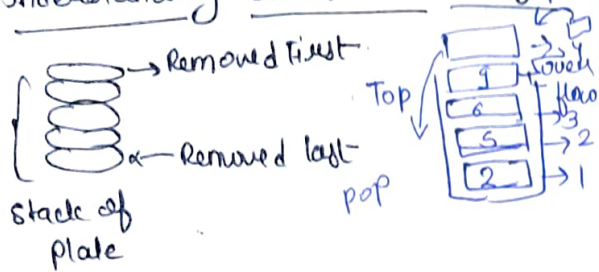 Removed First
Removed last
Stack of
plate
Top
pop
9
6
5
2
over
flow
3
2
1